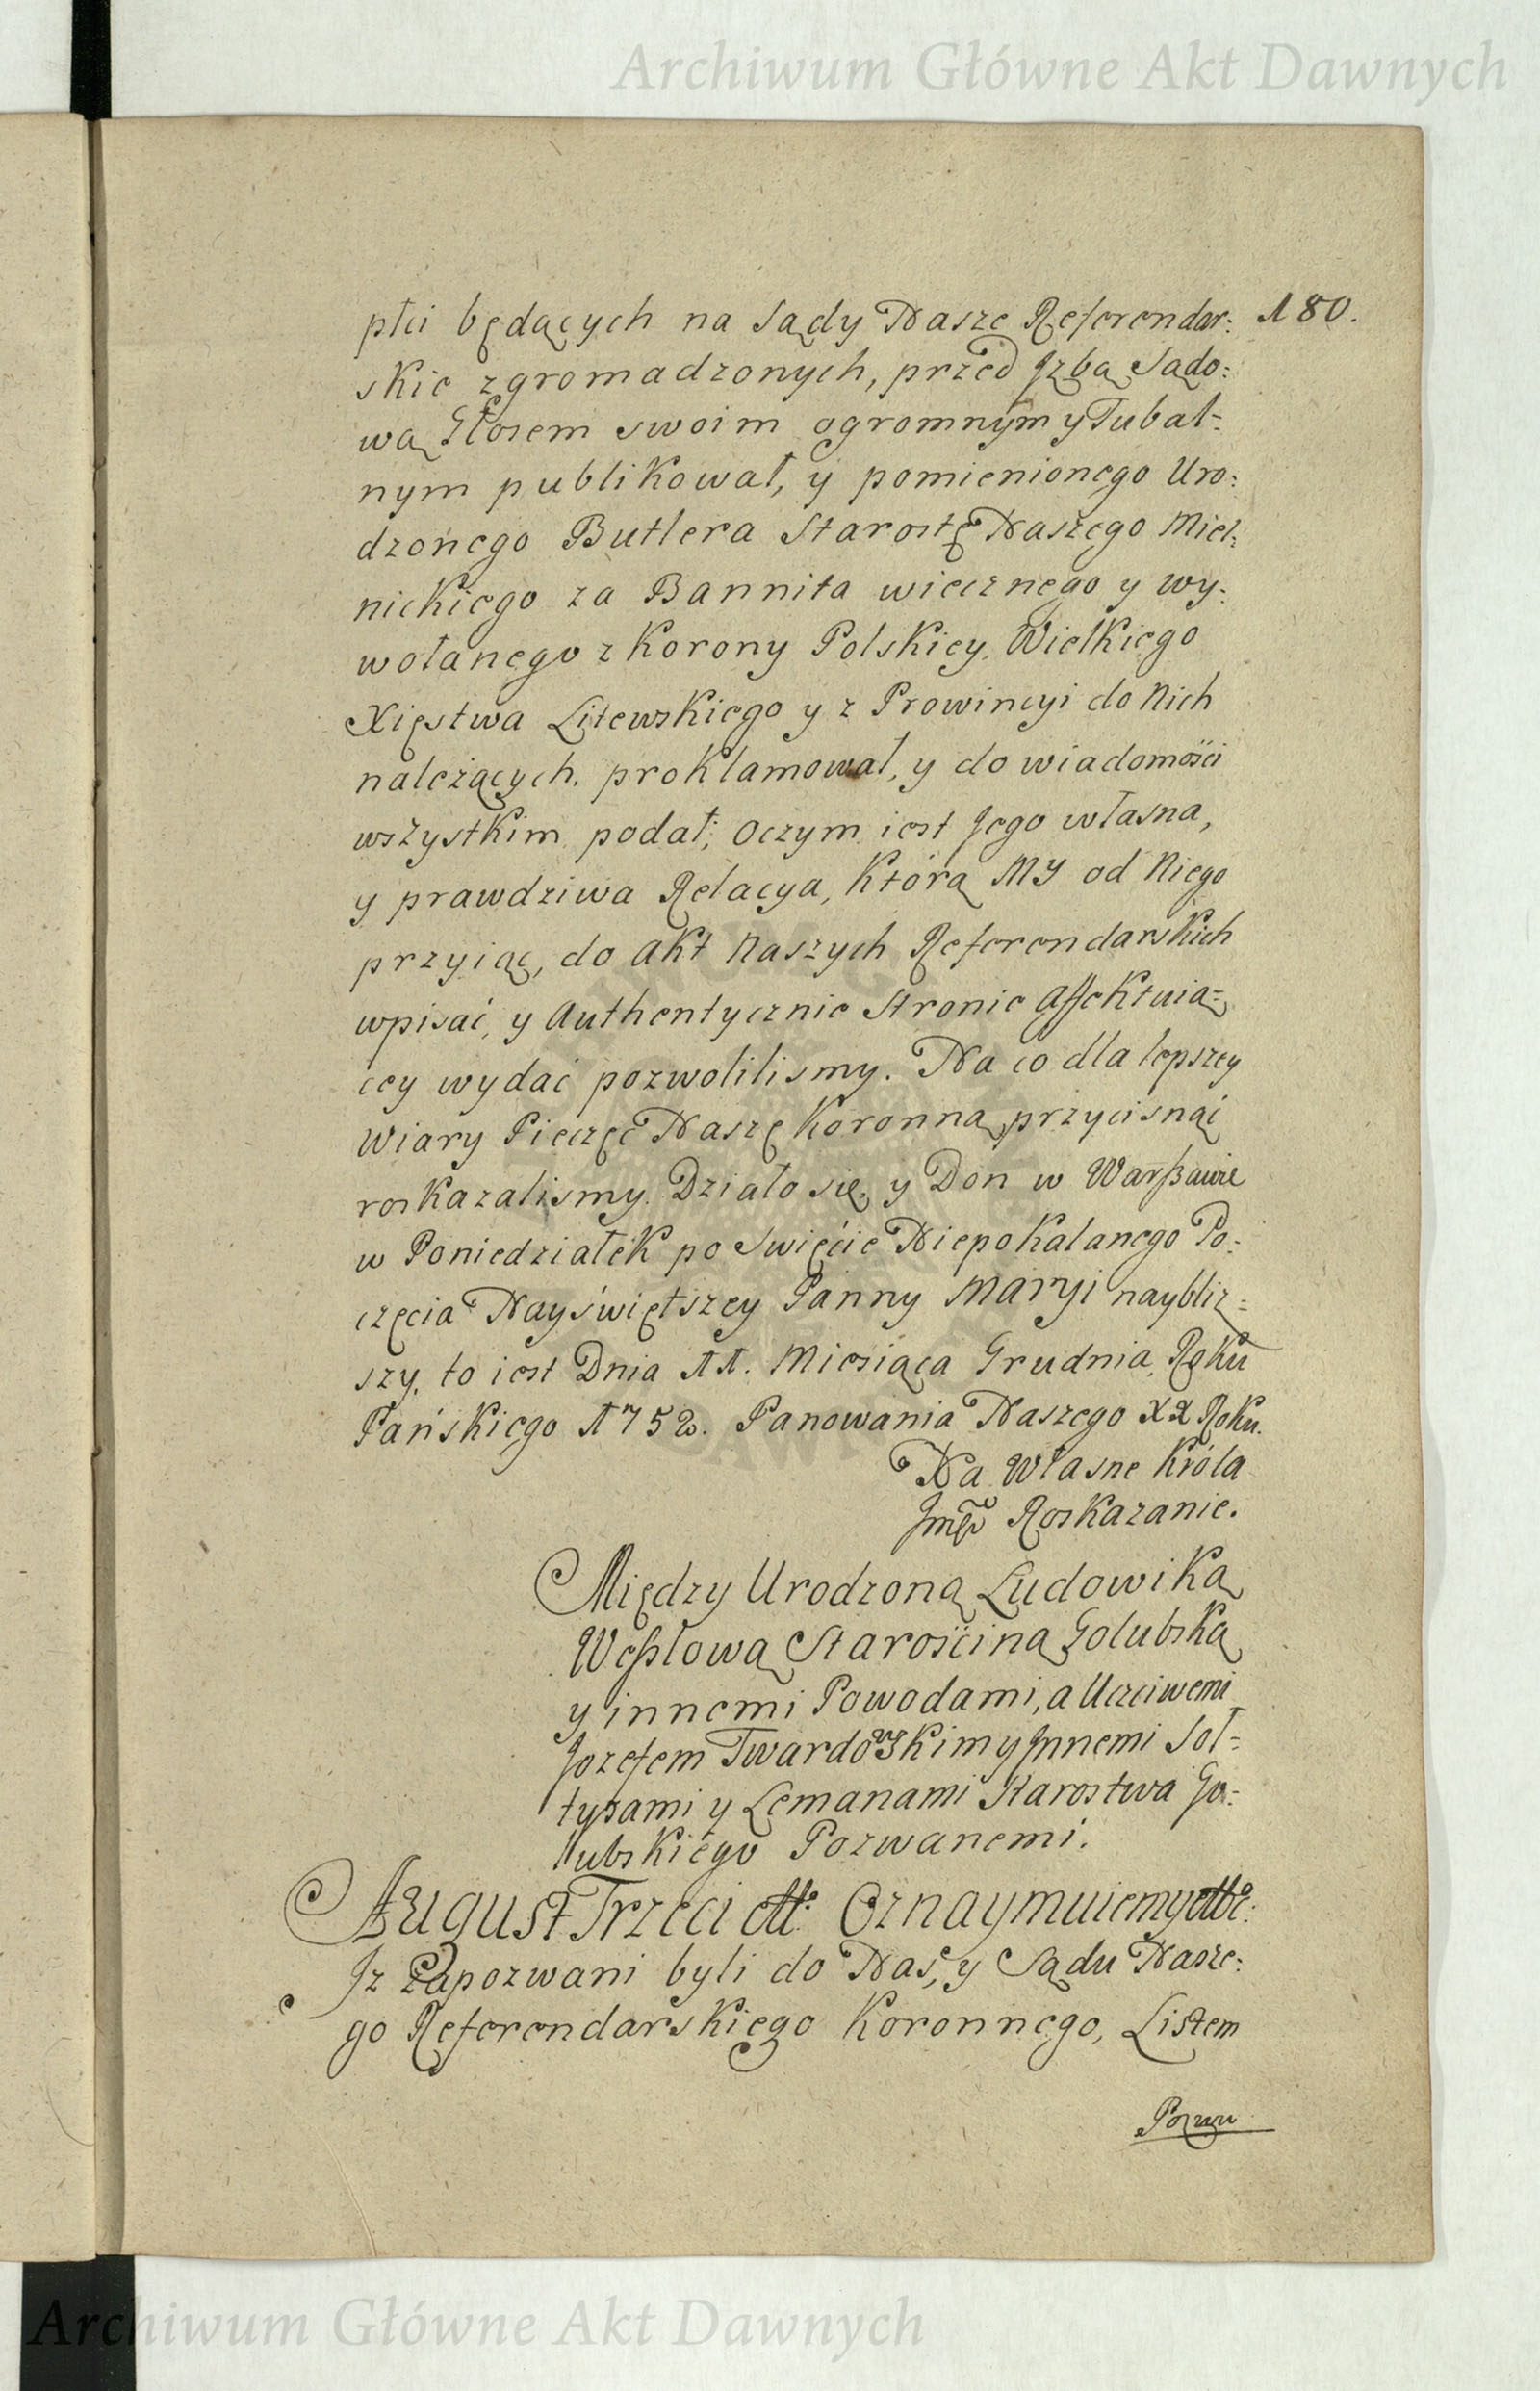 Archiwum Główne Akt Dawnych
płci będących na Sądy Nasze Referendar: 180.
skie zgromadzonych, przed Jzbą Sądo:
wą Głosem swoim ogromnym y Tubal=
nym publikował, y pomienionego Uro:
dzonego Butlera Starostę Naszego Miel:
nickiego za Bannita wiecznego y wy:
wołanego z Korony Polskiey, Wielkiego
Xięstwa Litewskiego y z Prowincyi do Nich
należących, proklamował, y do wiadomości
wszystkim podał; Oczym iest Jego własna,
y prawdziwa Relacya, Którą MY od Niego
przyiąć, do Akt Naszych Referendarskich
wpisać, y Authentycznie Stronie Affektuią=
cey wydać pozwolilismy. Na co dla lepszey
Wiary Pieczęć Naszę Koronną przycisnąć
roskazalismy. Działo się, y Dan w Warßawie
w Poniedziałek po Swięcie Niepokalanego Po:
częcia Nayświętszey Panny Maryi naybliz=
szy, to iest Dnia 11. Miesiąca Grudnia, Roku
Pańskiego 1752. Panowania Naszego XX Roku.
Na Własne Króla
Jmci Roskazanie.
Między Urodzoną Ludowiką
Weßlową Starościną Golubską
y innemi Powodami, a Uczciwemi
Jozefem Twardowskim y Jnnemi Soł=
tysami y Lemanami Starostwa Go=
lubskiego Pozwanemi.
August Trzeci etc: Oznaymuiemy etc:
Jz Zapozwani byli do Nas, y Sądu Nasze:
go Referendarskiego Koronnego, Listem
Pozwu
Archiwum Główne Akt Dawnych